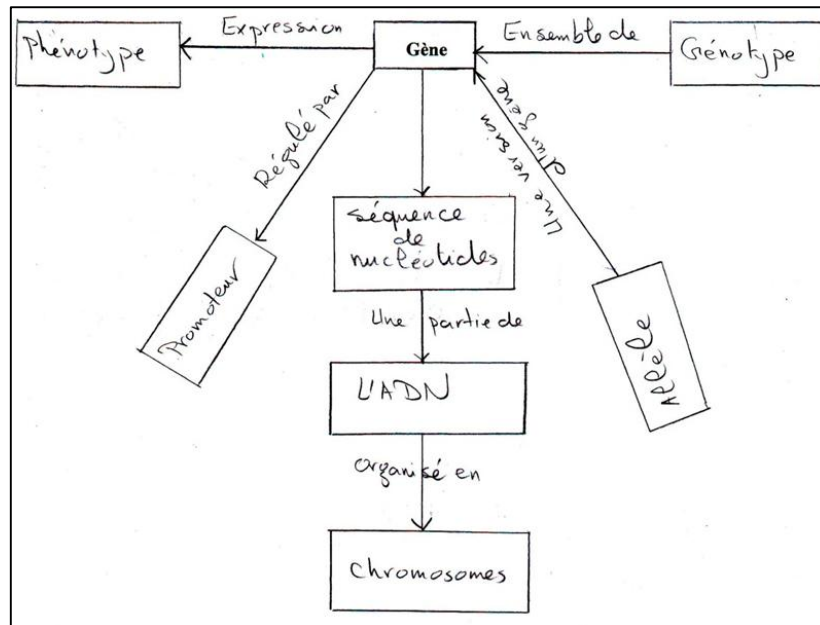 Expression
Ensemble de
Phénotype
Gène
Génotype
Régulé par
Une version
d'un gène
séquence
de
nucléotides
Promoteur
Allèle
Une partie de
L'ADN
organisé en
chromosomes